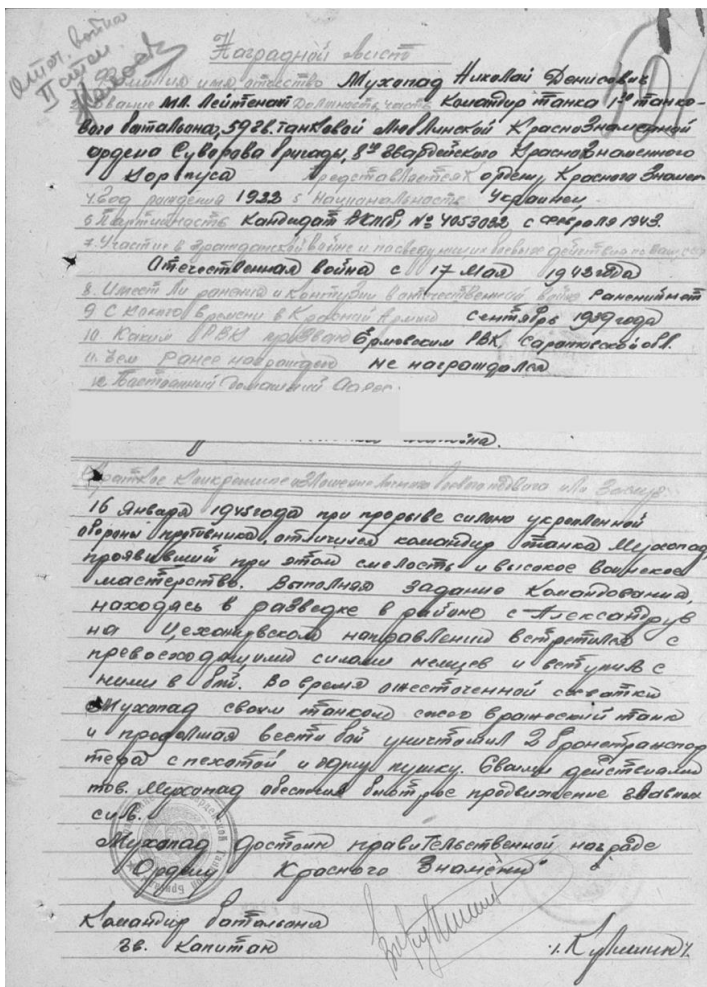 Отеч. война
II степ.
Наградной лист
Фамилия имя отчество Мухопад Николай Денисович
Звание мл. Лейтенат Должность часть Командир танка 1го танко-
вого баталиона, 59 гв. танковой Люблинской Краснознаменной
ордена Суворова бригады, 8го гвардейского Краснознаменного
Корпуса представляется к ордену Красного Знамени
4. Год рождения 1922 5 Национальность Украинец
6 Партийность Кандидат ВКП(б), № 4053032 с февраля 1943.
7. Участие в гражданской войне и последующих боевых действиях
Отечественная война с 17 мая 1943 года
8. Имеет ли ранения и контузии в отечественной войне Ранений нет
9 С какого времени в Красной Армии Сентябрь 1939 года
10 Каким РВК призван Ермовским РВК, Саратовской обл.
11. Чем ранее награжден не награждался
12. Постоянный домашний адрес.
Краткое конкретное изложение личного боевого подвига или заслуг
16 Января 1945 года при прорыве сильно укрепленной
обороны противника, отличился командир танка Мухопад,
проявивший при этом смелость и высокое воинское
мастерство. Выполняя задание Командования,
находясь в разведке в районе с Александрув
на Цехановском направлении встретился с
превосходящими силами немцев и вступил с
ними в бой. Во время ожесточенной схватки
Мухопад своим танком сжег вражеский танк
и продолжая вести бой уничтожил 2 бронетранспор
тера с пехотой и одну пушку. Своими действиями
тов. Мухопад обеспечил быстрое продвижение главных
сил.
Мухопад достоин правительственной награде
Ордену Красного Знамени
Командир батальона
гв. Капитан